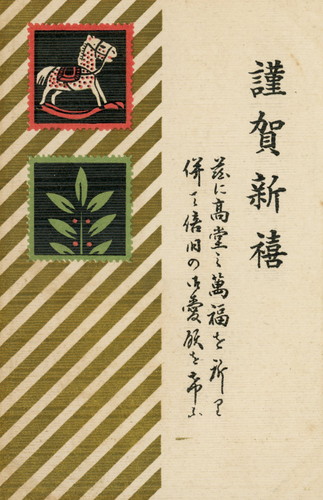 謹賀新禧
茲に高堂之萬福を祈り
併て倍旧の御愛顧を希ふ